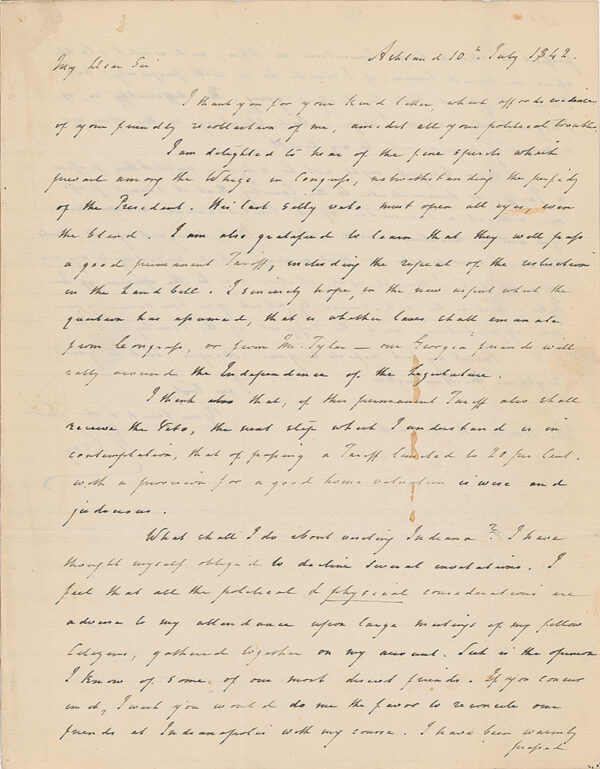 Ashland 10h July 1842.
My Dear Sir
I thank you for your kind letter, which affords evidence
of your friendly recollection of me, amidst all your political troubles.
I am delighted to hear of the fine spirits which
prevail among the Whigs in Congress, notwithstanding the perfidy
of the President. His last silly veto must open all eyes, even
the blind. I am also gratified to learn that they will pass
a good permanent Tariff, including the repeal of the restriction
in the Land bill. I sincerely hope, in the new aspect which the
question has assumed, that is whether laws shall emanate
from Congress, or from Mr. Tyler — our Georgia friends will
rally around the Independence of the Legislature.
I think also that, if this permanent Tariff also shall
receive the Veto, the next step which I understand is in
contemplation, that of passing a Tariff limited to 20 per Cent.
with a provision for a good home valuation is wise and
judicious.
What shall I do about visiting Indiana? I have
thought myself obliged to decline several invitations. I
feel that all the political & physical considerations are
adverse to my attendance upon large meetings of my fellow
Citizens, gathered together on my account. Such is the opinion
I know of some of our most discreet friends. If you concur
in it, I wish you would do me the favor to reconcile our
friends at Indianapolis with my course. I have been warmly
pressed